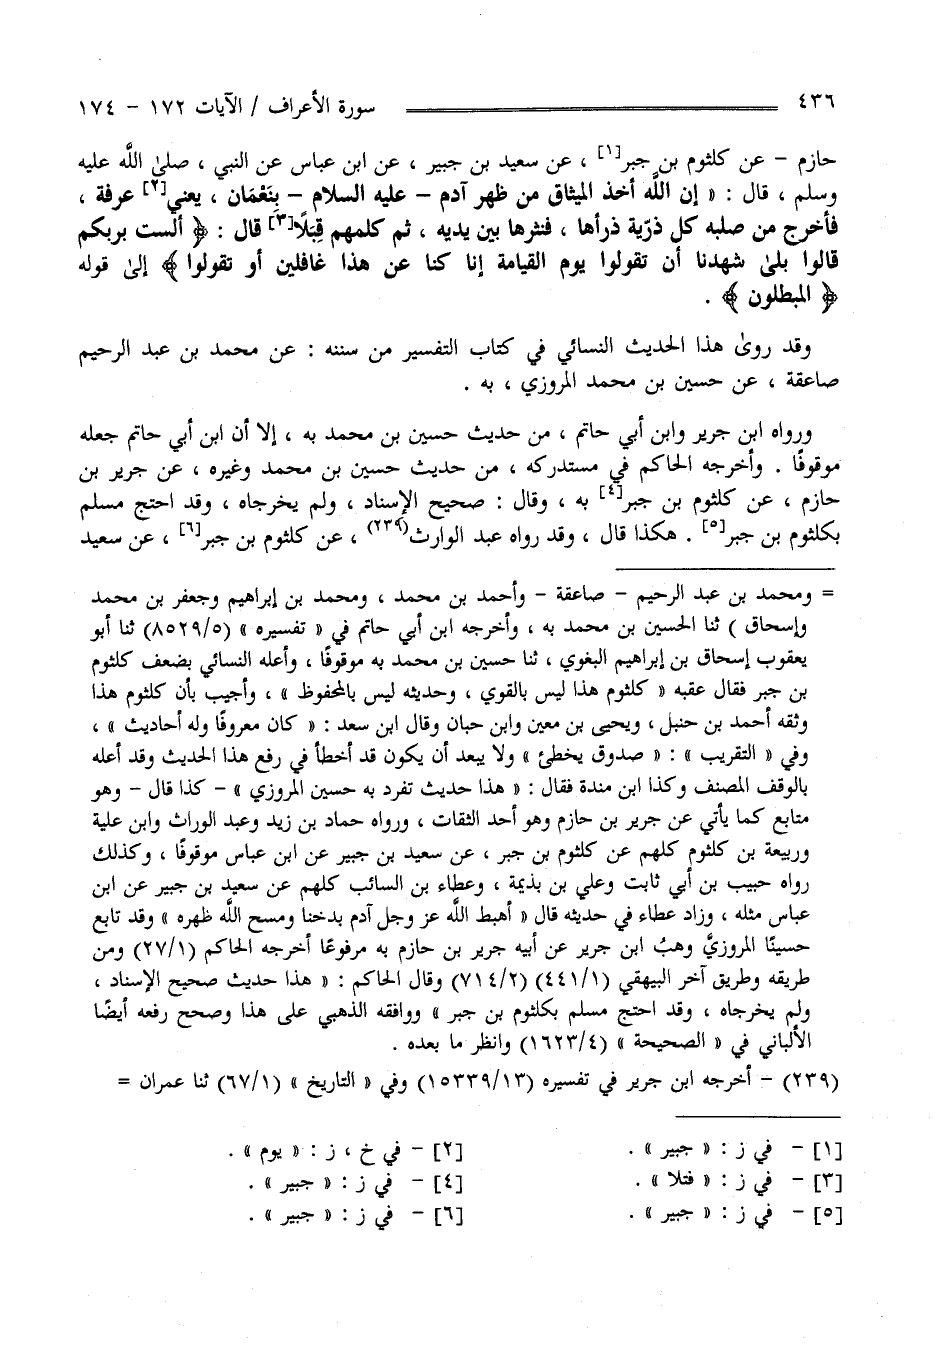 ٤٣٦ سورة الأعراف / الآيات ١٧٢ - ١٧٤
حازم - عن كلثوم بن جبر[١] ، عن سعيد بن جبير ، عن ابن عباس عن النبي ، صلىٰ اللَّه عليه
وسلم ، قال : « إن اللَّه أخذ الميثاق من ظهر آدم - عليه السلام - بِنَعْمَان ، يعني[٢] عرفة ،
فأخرج من صلبه كل ذرّية ذرأها ، فنثرها بين يديه ، ثم كلمهم قِبَلًا[٣] قال : ﴿ ألست بربكم
قالوا بلىٰ شهدنا أن تقولوا يوم القيامة إنا كنا عن هذا غافلين أو تقولوا ﴾ إلىٰ قوله
﴿ المبطلون ﴾ .
وقد روىٰ هذا الحديث النسائي في كتاب التفسير من سننه : عن محمد بن عبد الرحيم
صاعقة ، عن حسين بن محمد المروزي ، به .
ورواه ابن جرير وابن أبي حاتم ، من حديث حسين بن محمد به ، إلا أن ابن أبي حاتم جعله
موقوفًا . وأخرجه الحاكم في مستدركه ، من حديث حسين بن محمد وغيره ، عن جرير بن
حازم ، عن كلثوم بن جبر[٤] به ، وقال : صحيح الإسناد ، ولم يخرجاه ، وقد احتج مسلم
بكلثوم بن جبر[٥] . هكذا قال ، وقد رواه عبد الوارث(٢٣٩) ، عن كلثوم بن جبر[٦] ، عن سعيد
= ومحمد بن عبد الرحيم - صاعقة - وأحمد بن محمد ، ومحمد بن إبراهيم وجعفر بن محمد
وإسحاق ) ثنا الحسين بن محمد به ، وأخرجه ابن أبي حاتم في « تفسيره » (٨٥٢٩/٥) ثنا أبو
يعقوب إسحاق بن إبراهيم البغوي ، ثنا حسين بن محمد به موقوفًا ، وأعله النسائي بضعف كلثوم
بن جبر فقال عقبه « كلثوم هذا ليس بالقوي ، وحديثه ليس بالمحفوظ » ، وأجيب بأن كلثوم هذا
وثقه أحمد بن حنبل ، ويحيى بن معين وابن حبان وقال ابن سعد : « كان معروفًا وله أحاديث » ،
وفي « التقريب » : « صدوق يخطئ » ولا يبعد أن يكون قد أخطأ في رفع هذا الحديث وقد أعله
بالوقف المصنف وكذا ابن مندة فقال : « هذا حديث تفرد به حسين المروزي » - كذا قال - وهو
متابع كما يأتي عن جرير بن حازم وهو أحد الثقات ، ورواه حماد بن زيد وعبد الوراث وابن علية
وربيعة بن كلثوم كلهم عن كلثوم بن جبر ، عن سعيد بن جبير عن ابن عباس موقوفًا ، وكذلك
رواه حبيب بن أبي ثابت وعلي بن بذيمة ، وعطاء بن السائب كلهم عن سعيد بن جبير عن ابن
عباس مثله ، وزاد عطاء في حديثه قال « أهبط اللَّه عز وجل آدم بدخنا ومسح اللَّه ظهره » وقد تابع
حسينًا المروزيَّ وهبُ ابن جرير عن أبيه جرير بن حازم به مرفوعًا أخرجه الحاكم (٢٧/١) ومن
طريقه وطريق آخر البيهقي (٤٤١/١) (٧١٤/٢) وقال الحاكم : « هذا حديث صحيح الإسناد ،
ولم يخرجاه ، وقد احتج مسلم بكلثوم بن جبر » ووافقه الذهبي على هذا وصحح رفعه أيضًا
الألباني في « الصحيحة » (١٦٢٣/٤) وانظر ما بعده .
(٢٣٩) - أخرجه ابن جرير في تفسيره (١٥٣٣٩/١٣) وفي « التاريخ » (٦٧/١) ثنا عمران =
[١] - في ز : « جبير » . [٢] - في خ ، ز : « يوم » .
[٣] - في ز : « فتلا » . [٤] - في ز : « جبير » .
[٥] - في ز : « جبير » . [٦] - في ز : « جبير » .